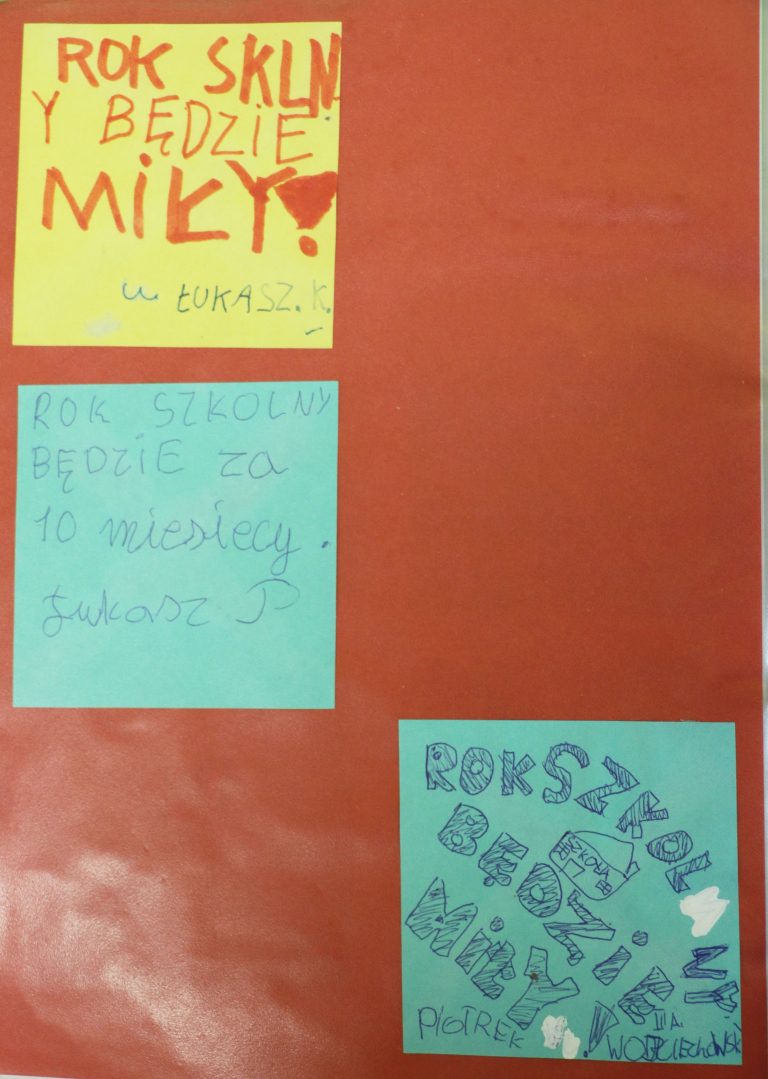 ROK SKLN
Y BĘDZIE
MIŁY!
ŁUKASZ.K.
ROK SZKOLNY
BĘDZIE za
10 miesięcy.
Łukasz P
ROK SZKOL
NY
BĘDZIE
SZKOŁA
MIŁY!
PIOTREK
III A.
WOJCIECHOWSKI